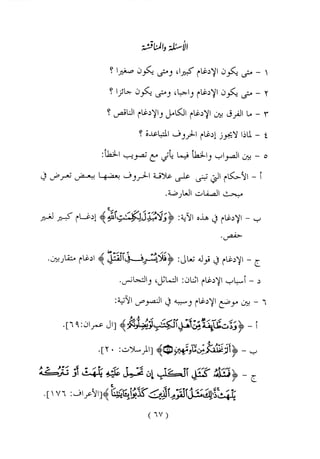 الأسئلة والمناقشة
١ - متى يكون الإدغام كبيرا، ومتى يكون صغيرا ؟
٢ - متى يكون الإدغام واجبا، ومتى يكون جائزا ؟
٣ - ما الفرق بين الإدغام الكامل والإدغام الناقص ؟
٤ - لماذا لايجوز إدغام الحروف المتباعدة ؟
٥ - بين الصواب والخطأ فيما يأتي مع تصويب الخطأ:
أ - الأحكام التي تبنى على علاقة الحروف بعضها ببعض تعرض في
مبحث الصفات العارضة.
ب - الإدغام في هذه الآية: ﴿وَلَا مُبَدِّلَ لِكَلِمَٰتِ ٱللَّهِ﴾ إدغام كبير لغير
حفص.
ج - الإدغام في قوله تعالى: ﴿فَلَا يُسْرِف فِّي ٱلْقَتْلِ﴾ ادغام متقاربين.
د - أسباب الإدغام اثنان: التماثل، والتجانس.
٦ - بين موضع الإدغام وسببه في النصوص الآتية:
أ - ﴿وَدَّت طَّآئِفَةٌ مِّنْ أَهْلِ ٱلْكِتَٰبِ لَوْ يُضِلُّونَكُمْ﴾ [آل عمران: ٦٩].
ب - ﴿أَلَمْ نَخْلُقكُّم مِّن مَّآءٍ مَّهِينٍ﴾ [المرسلات: ٢٠].
ج - ﴿فَمَثَلُهُۥ كَمَثَلِ ٱلْكَلْبِ إِن تَحْمِلْ عَلَيْهِ يَلْهَثْ أَوْ تَتْرُكْهُ
يَلْهَث ذَّٰلِكَ مَثَلُ ٱلْقَوْمِ ٱلَّذِينَ كَذَّبُوا۟ بِـَٔايَٰتِنَا﴾ [الأعراف: ١٧٦].
(٦٧)